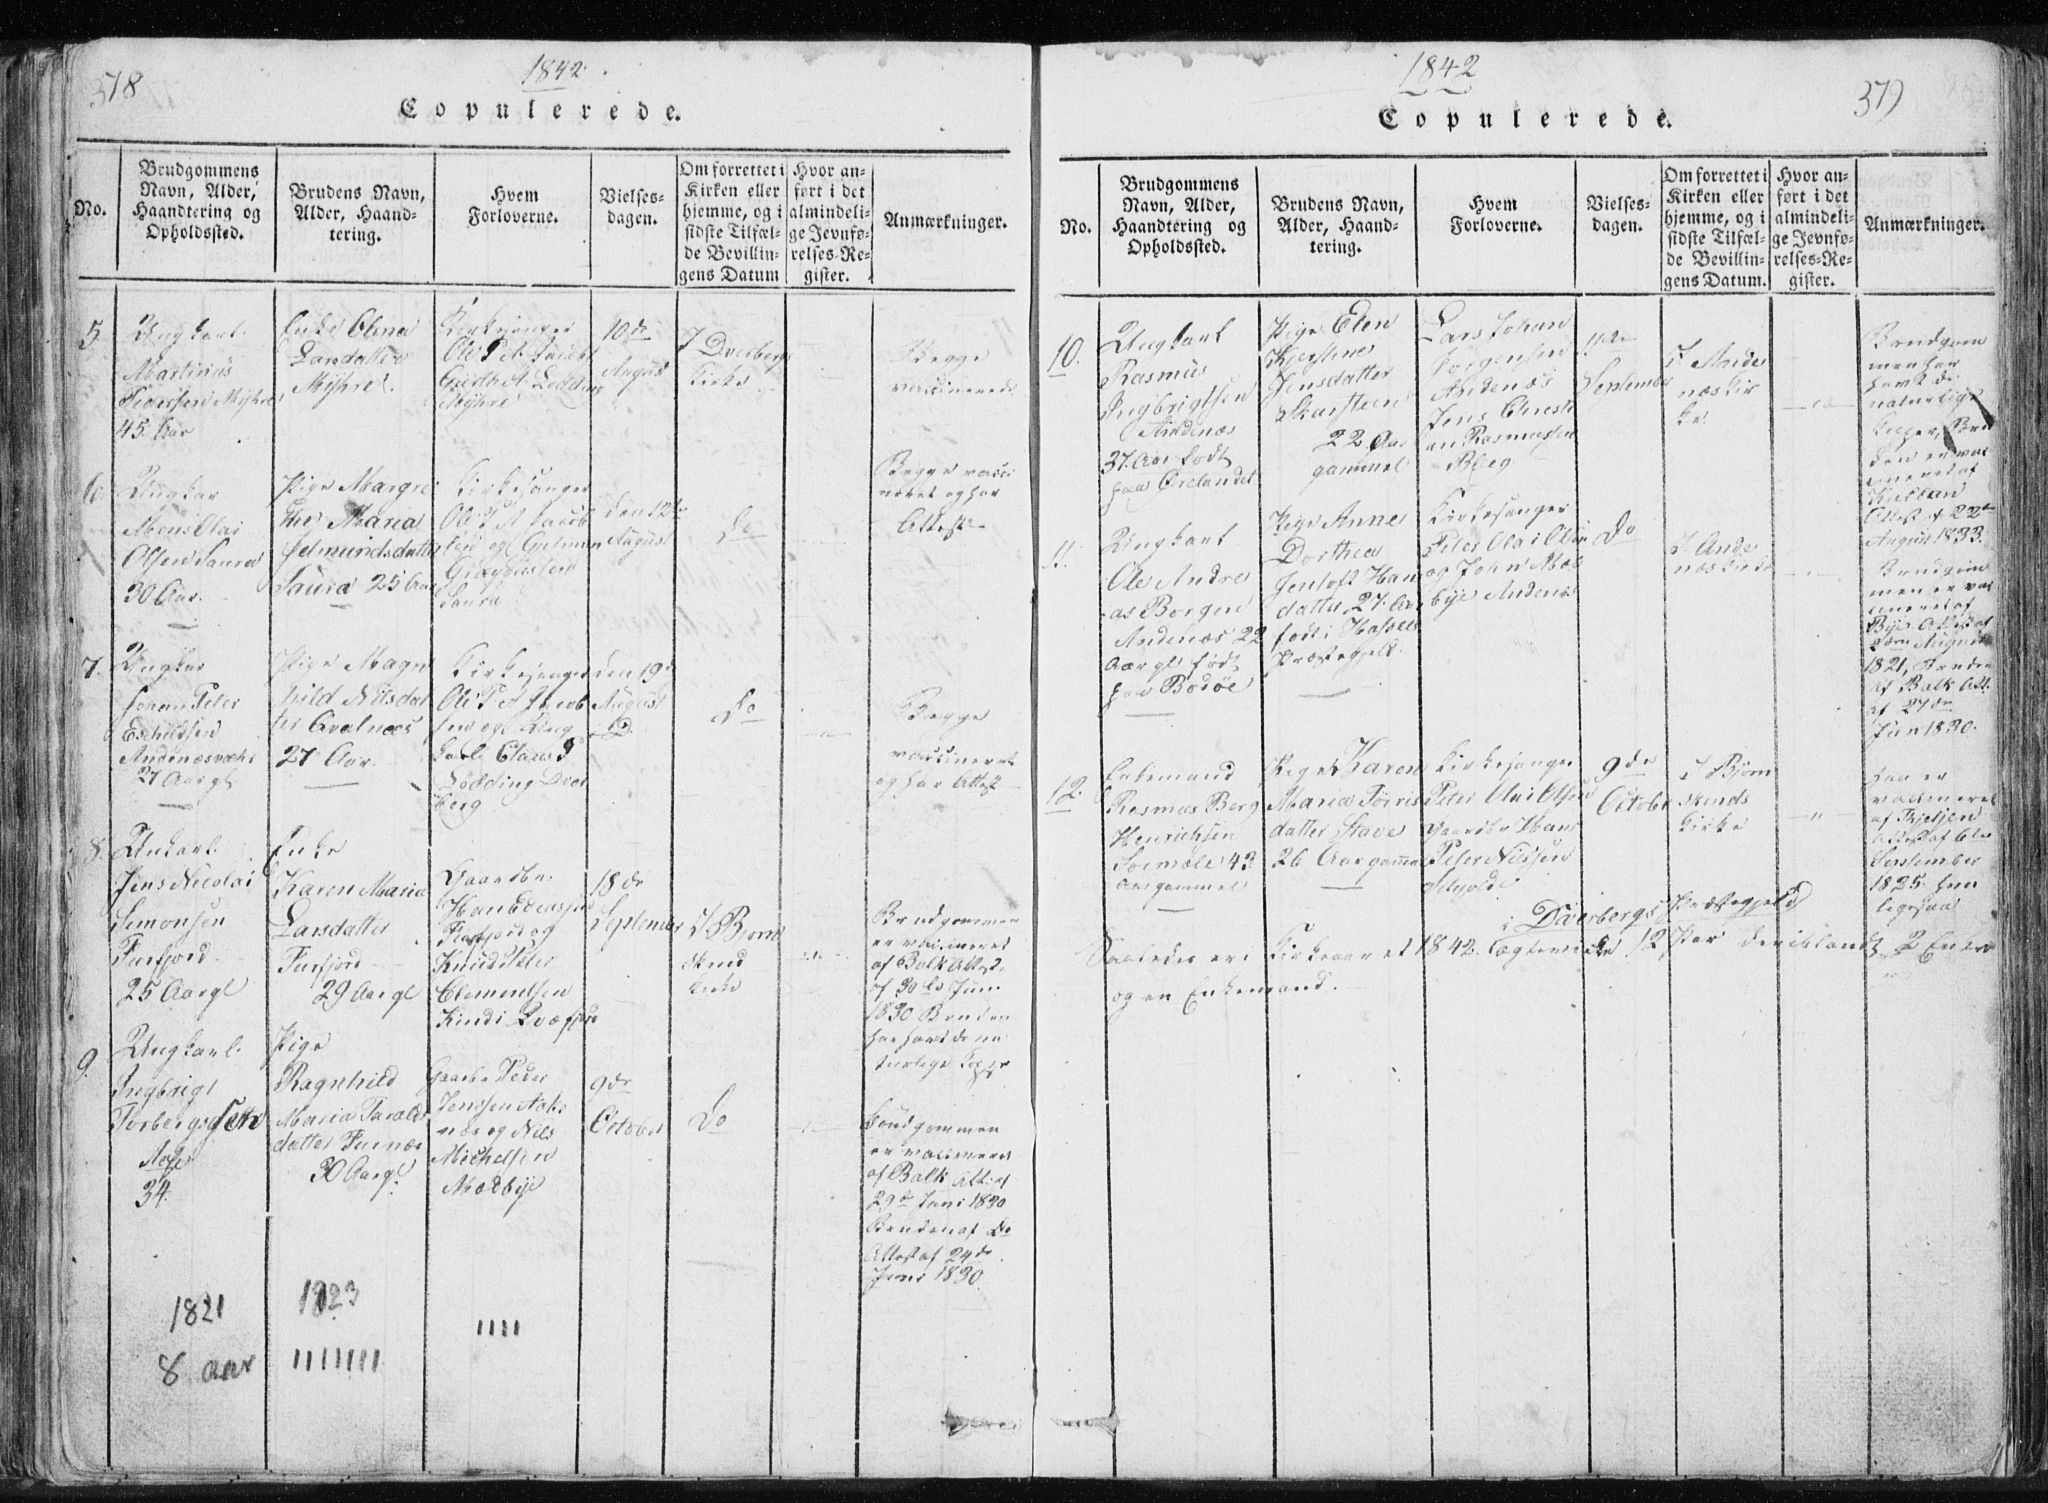 578
1842
Copulerede.
No.
Brudgommens
Navn, Alder,
Haandtering og
Opholdssted.
Brudens Navn,
Alder, Haand-
tering.
Hvem
Forloverne.
Vielses-
dagen.
Om forrettet i
Kirken eller
hjemme, og i
sidste Tilfæl-
de Bevillin-
gens Datum
Hvor an-
ført i det
almindeli-
ge Jevnfø-
relses-Re-
gister.
Anmærkninger.
5.
Ungkarl
Martinus
Pedersen Myhre
45 Aar
Enke Olena
Larsdatter
Myhre.
Kirkesanger
Ole P. A. Jacobs
Myhre
10de
August
I Dverbergs
Kirke
Begge
vaccinerede
6.
Ungkar
Mens Olai
Olsen Saura
30 Aar.
Pige Margre
the Maria
Gelmundsdatter
Saura 25 Aar
Kirkesanger
Ole P A Jacob
sen og Gelmun
Saura
den 12te
August
Do
Begge vacci
neret og har
Attest
7.
Ungkar
Johan Peter
Eschildsen
Andenesvæhr
27 Aar gl
Pige Magn
hild Nilsdat
ter Qvalnæs
27 Aar
Kirkesanger
Ole P A Jacob
sen og Ung
karl Claus
Dver
berg
den 19de
August
Do
Begge
vaccineret
og har Attest
8.
Unkarl
Jens Nicolai
Simonsen
Furfjord
25 Aar gl
Enke
Karen Maria
Larsdatter
Furfjord
29 Aar gl
Gaardbr.
Knud Peter
Clementsen
Kindi Qvæfjord
18de
September
I Biørn
skind
Kirke
Brudgommen
er vaccineret
af Balk Attst.
af 30te Juni
1830 Bruden
har havt de na
turlige Kopper
9.
Ungkarl.
Ingbrigt
Torbergssen
Aase
34.
Pige
Ragnhild
Maria Tarald
datter Furnæs
30 Aar gl.
Gaardbr Peder
Jenssen Aak
næs og Nils
Michelsen
Medbye
9de
October
Do
Brudgommen
er vaccineret
af Balk Att. af
29de Juni 1830
Bruden af Do
Attest af 24de
Juni 1830.
1821
1823
8 aar
1842
579
Copulerede.
No.
Brudgommens
Navn, Alder,
Haandtering og
Opholdssted.
Brudens Navn,
Alder, Haand-
tering.
Hvem
Forloverne.
Vielses-
dagen.
Om forrettet i
Kirken eller
hjemme, og i
sidste Tilfæl-
de Bevillin-
gens Datum.
Hvor an-
ført i det
almindeli-
ge Jevnfø-
relses-Re-
gister.
Anmærkninger.
10.
Ungkarl
Rasmus
Ingbrigtsen
Andenæs
37 Aar født
paa Ørelandet
Pige Elen
Kjerstine
Jensdatter
Skarsteen
22 Aar
gammel
Lars Johan
Jørgensen
Andenæs
Jens Christi
an Rasmussen
Bleg
September
I Ande
næs Kir
ke
Brudgom
men har
havt de
naturlige
Kopper, Bru
den er vac
cineret af
Attest af 22de
August 1833.
11.
Ungkarl
Ole Andre
as Borgen
Andenæs 22
Aar gl født
paa Bodøe
Pige Anne
Dorthea
Jentoft Hans
datter 27 Aar
født i Hassels
Præstegjeld.
Kirkesanger
Peter Olai Olsen
og John Med
bye Andenæs
Do
I Ande
næs Kirke
Brudgom
men er vac
cineret af
Bye Attest af
August
1821, Bruden
af Balk Att.
af 27de
Juni 1830.
12.
Enkemand
Rasmus Berg
Henrichsen
Sørmæle 43
Aar gammel
Pige Karen
Maria Tørris
datter Stave
26 Aar gammel
Kirkesanger
Peter Olai Olsen
Gaardbr Hans
Peter Nilssen
9de
October
I Biørn
skinds
Kirke
Hun er
vaccineret
af
Attest af 6te
September
1825. Han
ligesaa
i Dverbergs Præstegjeld
Saaledes er i Kirkeaaret 1842 Ægteviede 12 Par deriblandt 2 Enker
og en Enkemand.